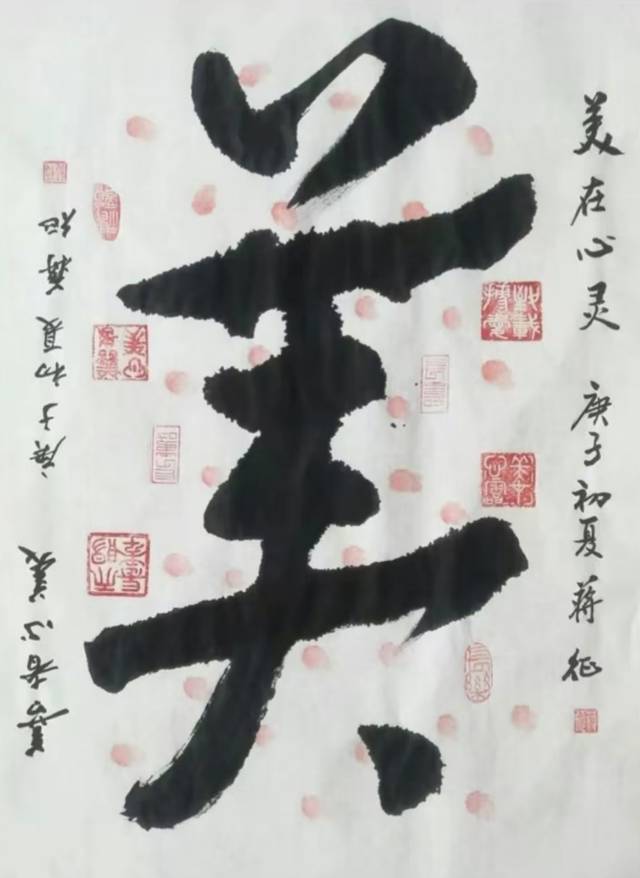 美在心灵 庚子初夏蒋征
美
善者心美 庚子初夏蒋征